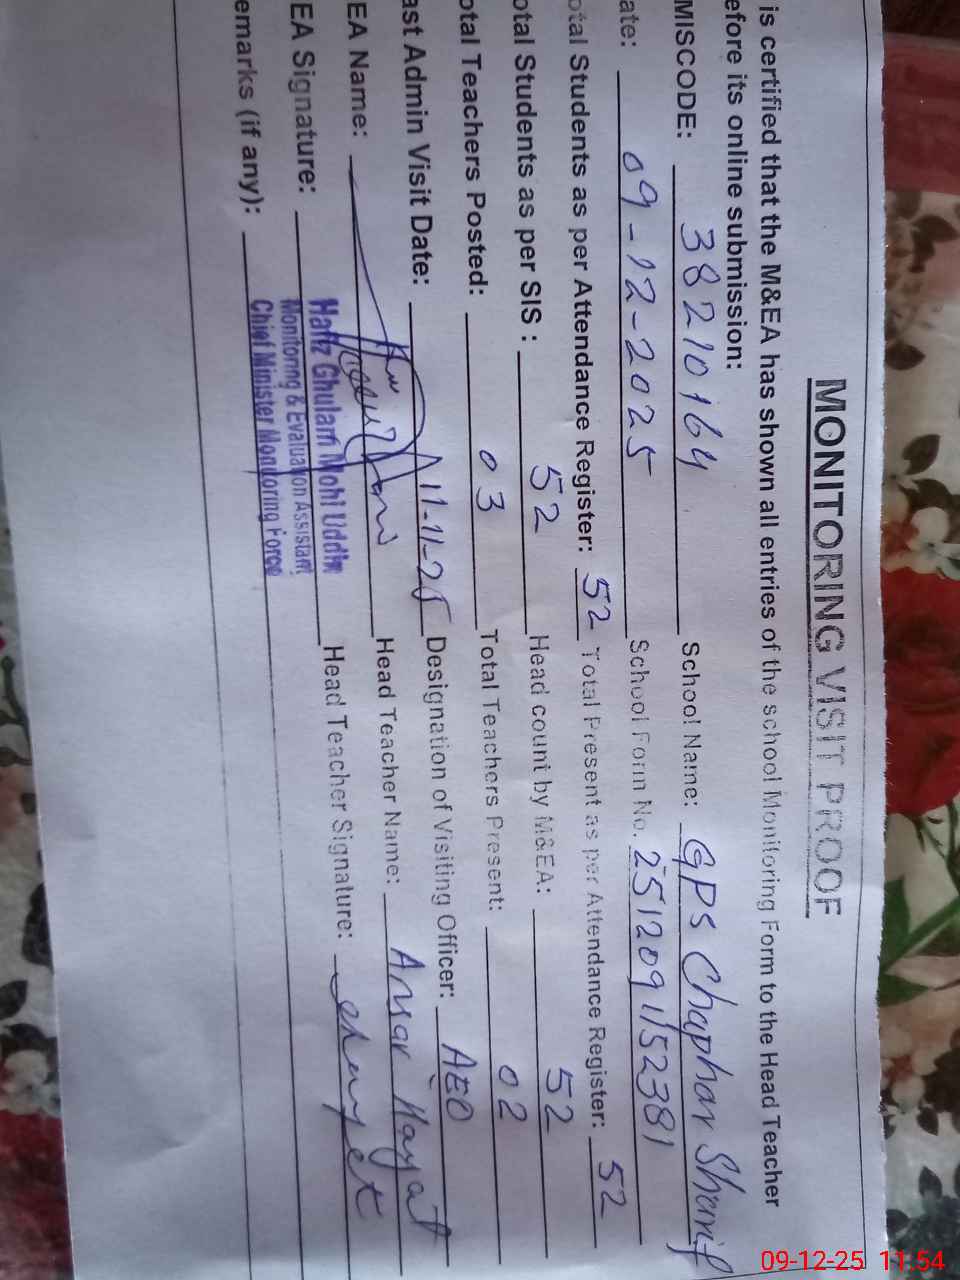 MONITORING VISIT PROOF
is certified that the M&EA has shown all entries of the school Monitoring Form to the Head Teacher
efore its online submission:
MISCODE: 38210164 School Name: GPS Chaphar Sharif
ate: 09-12-2025 School Form No. 2512091152381
otal Students as per Attendance Register: 52 Total Present as per Attendance Register: 52
otal Students as per SIS : 52 Head count by M&EA: 52
otal Teachers Posted: 03 Total Teachers Present: 02
ast Admin Visit Date: 11-11-25 Designation of Visiting Officer: AEO
EA Name: Head Teacher Name: Ansar Hayat
EA Signature: Head Teacher Signature:
Hafiz Ghulam Mohi Uddin
Monitoring & Evaluation Assistant
emarks (if any): Chief Minister Monitoring Force
09-12-25 11:54